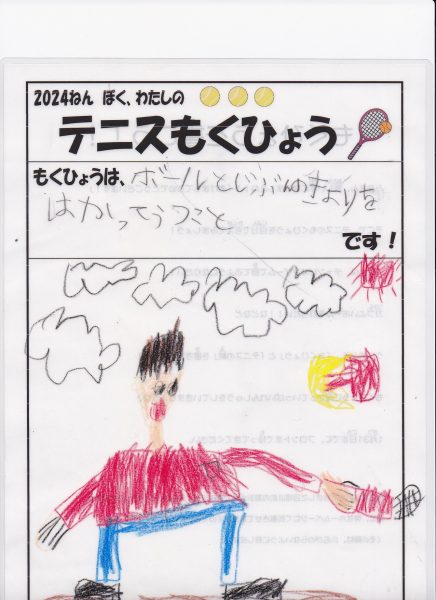 2024ねん ぼく、わたしの
テニスもくひょう
もくひょうは、ボールとじぶんのきょりを
はかってうつこと
です！